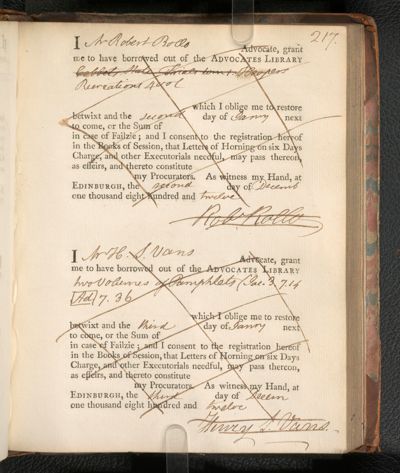 217.
I Mr Robert Rollo Advocate, grant
me to have borrowed out of the ADVOCATES LIBRARY
Recreations 4 vol
which I oblige me to restore
betwixt and the second day of Janry next
to come, or the Sum of
in case of Failzie; and I consent to the registration hereof
in the Books of Session, that Letters of Horning on six Days
Charge, and other Executorials needful, may pass thereon,
as effeirs, and thereto constitute
my Procurators. As witness my Hand, at
EDINBURGH, the second day of Decemb
one thousand eight hundred and twelve
Rob. Rollo
I Mr H. S. Vans Advocate, grant
me to have borrowed out of the ADVOCATES LIBRARY
two Volumes of Pamphlets 3. 7.14
Ad 7. 36
which I oblige me to restore
betwixt and the third day of Janry next
to come, or the Sum of
in case of Failzie; and I consent to the registration hereof
in the Books of Session, that Letters of Horning on six Days
Charge, and other Executorials needful, may pass thereon,
as effeirs, and thereto constitute
my Procurators. As witness my Hand, at
EDINBURGH, the third day of Decem
one thousand eight hundred and twelve
Henry S. Vans.